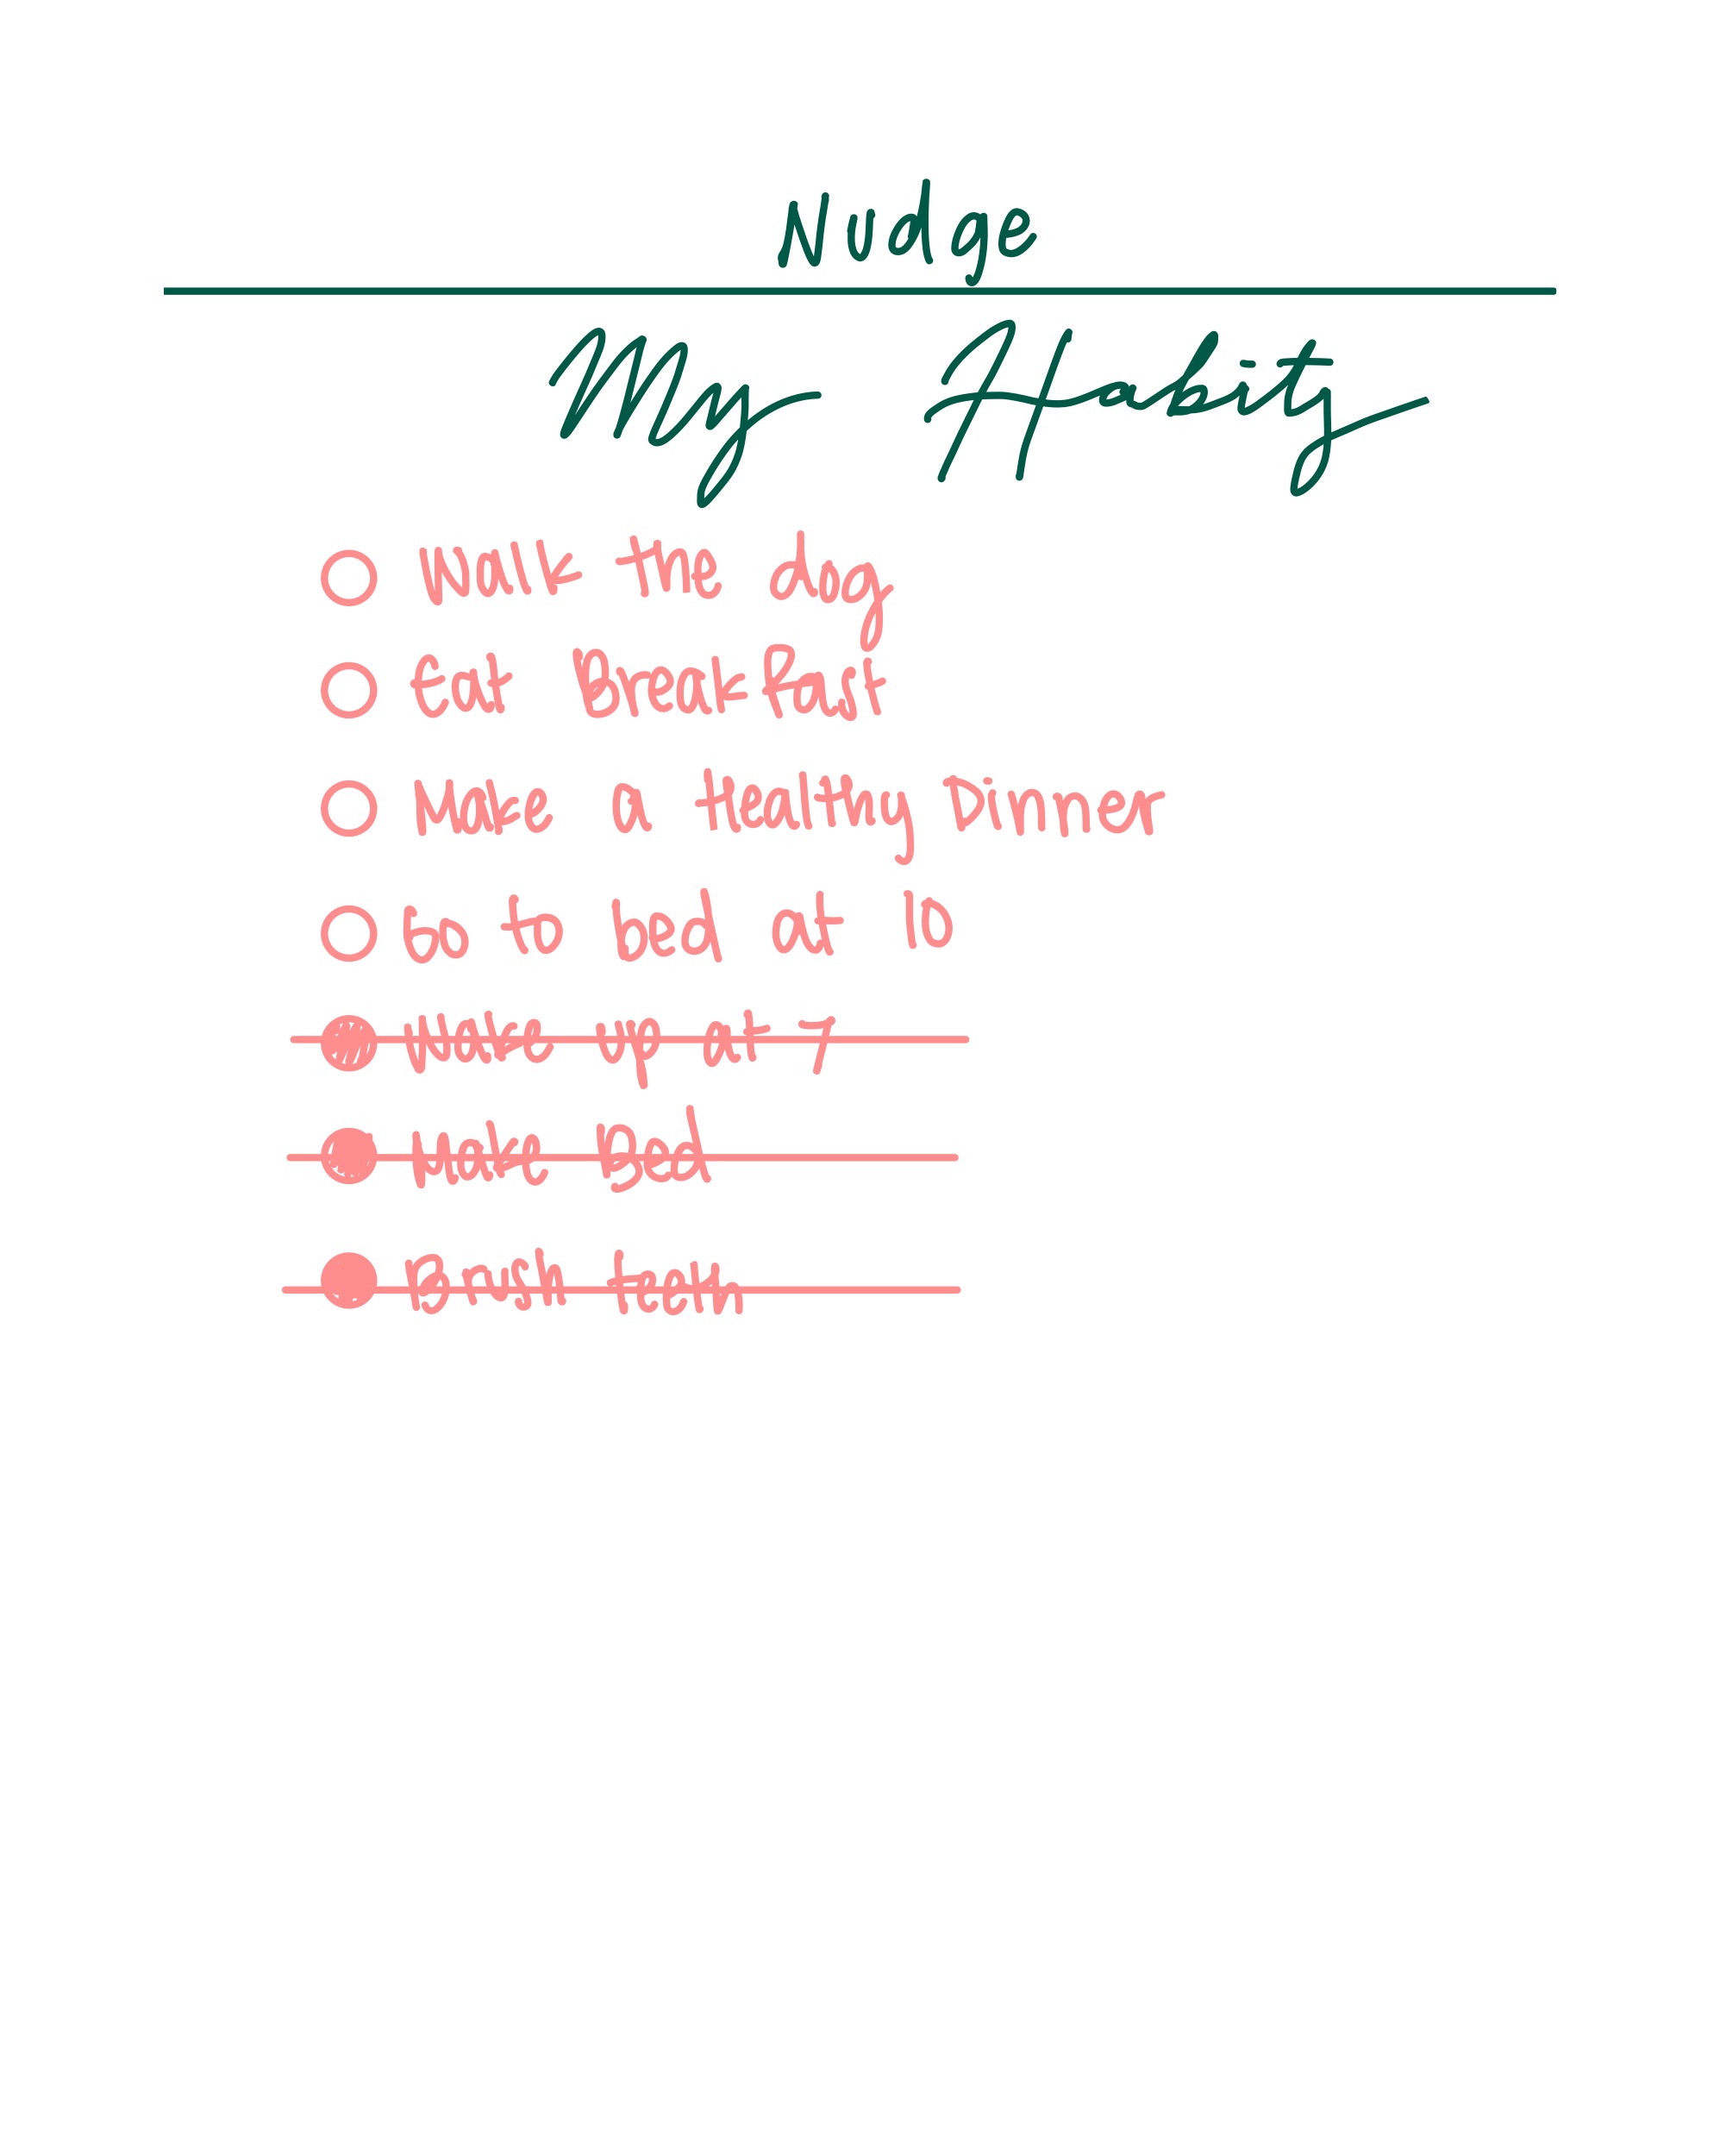 Nudge
My Habits
Walk the dog
Eat Breakfast
Make a Healthy Dinner
Go to bed at 10
Wake up at 7
Make Bed
Brush teeth